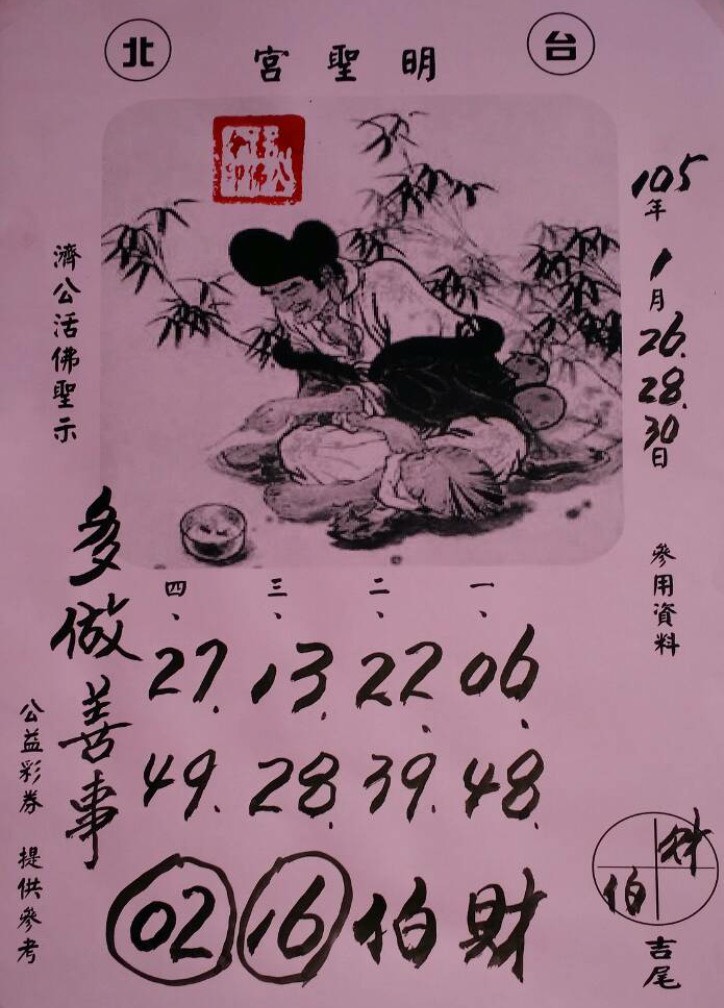 台北
明聖宮
105年1月26.28.30日
參用資料
濟公活佛聖示
一、
06.
48.
二、
22.
39.
三、
13.
28.
四、
27.
49.
財伯
16
02
多做善事
公益彩券 提供參考
財
伯
吉尾